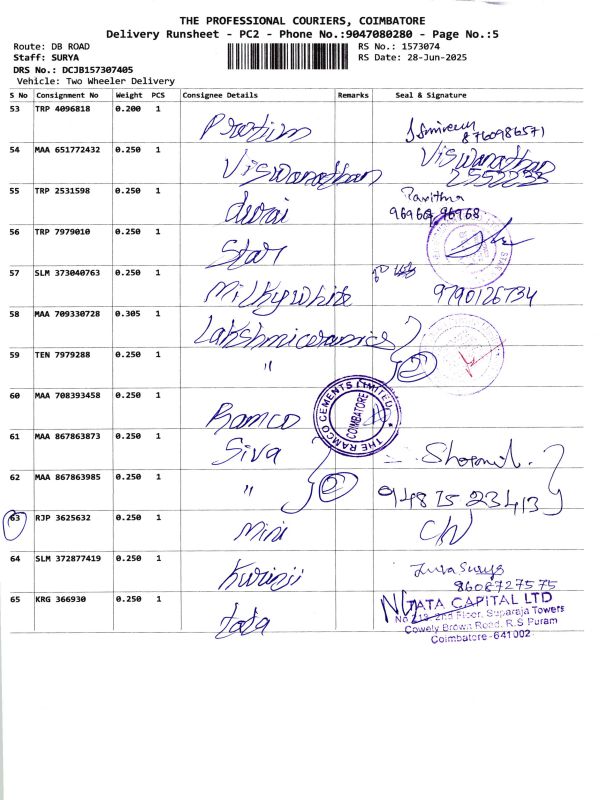 THE PROFESSIONAL COURIERS, COIMBATORE
Delivery Runsheet - PC2 - Phone No.:9047080280 - Page No.:5
Route: DB ROAD
RS No.: 1573074
Staff: SURYA
RS Date: 28-Jun-2025
DRS No.: DCJB157307405
Vehicle: Two Wheeler Delivery
S No Consignment No Weight PCS Consignee Details Remarks Seal & Signature
53 TRP 4096818 0.200 1
8760986571
54 MAA 651772432 0.250 1 Viswanathan Viswanathan
2552233
55 TRP 2531598 0.250 1 Durai Pavithra
96968 96968
56 TRP 7979010 0.250 1 Star
STAR
57 SLM 373040763 0.250 1 Milkywhite 9790126734
58 MAA 709330728 0.305 1 Lakshmiceramics
59 TEN 7979288 0.250 1 " 2
60 MAA 708393458 0.250 1 Ramco
THE RAMCO CEMENTS LIMITED
COIMBATORE
61 MAA 867863873 0.250 1 Siva
62 MAA 867863985 0.250 1 " 2 9487523413
63 RJP 3625632 0.250 1 Mini
64 SLM 372877419 0.250 1 Kurinji
8608727575
65 KRG 366930 0.250 1 Tata
TATA CAPITAL LTD
No 213, 2nd Floor, Suparaja Towers
Cowely Brown Road, R.S Puram
Coimbatore-641002